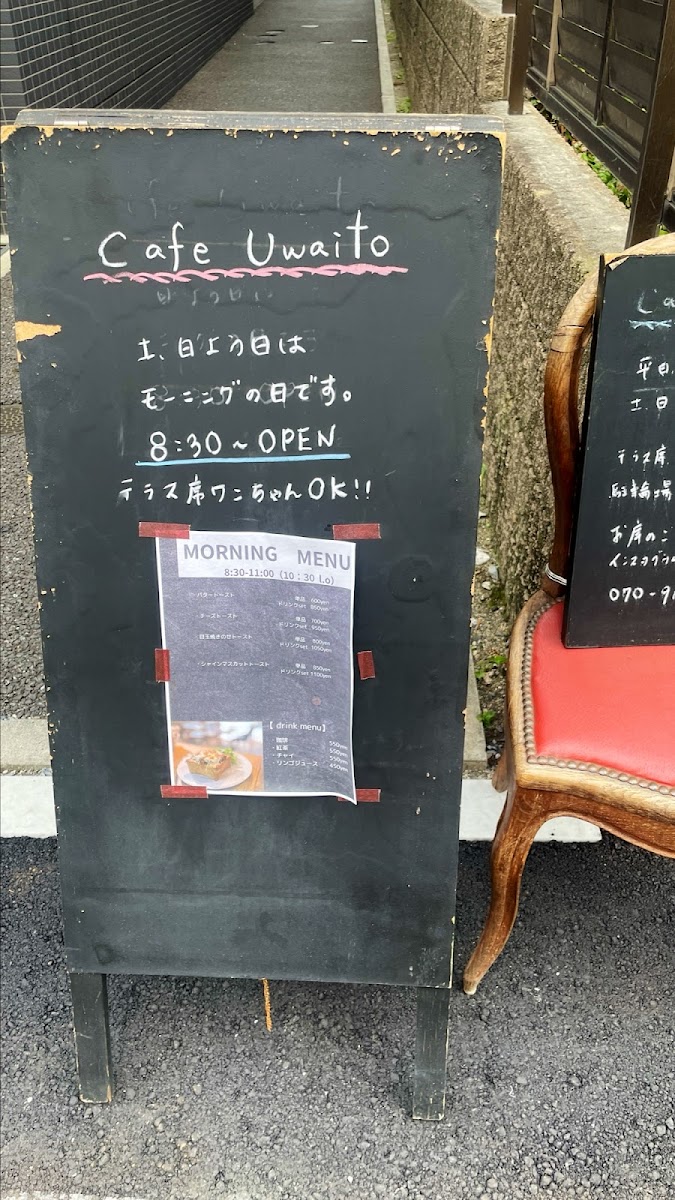 Cafe Uwaito
土、日よう日は
モーニングの日です。
8:30~OPEN
テラス席ワンちゃんOK!!
MORNING MENU
8:30-11:00（10：30 l.o）
・バタートースト 単品 600yen
ドリンクset 850yen
・チーズトースト 単品 700yen
ドリンクset 950yen
・目玉焼きのせトースト 単品 800yen
ドリンクset 1050yen
・シャインマスカットトースト 単品 850yen
ドリンクset 1100yen
【 drink menu】
・珈琲 550yen
・紅茶 550yen
・チャイ 550yen
・リンゴジュース 450yen
Ca
平日
土、日
テラス席
駐輪場
お席の
インスタグラ
070-9